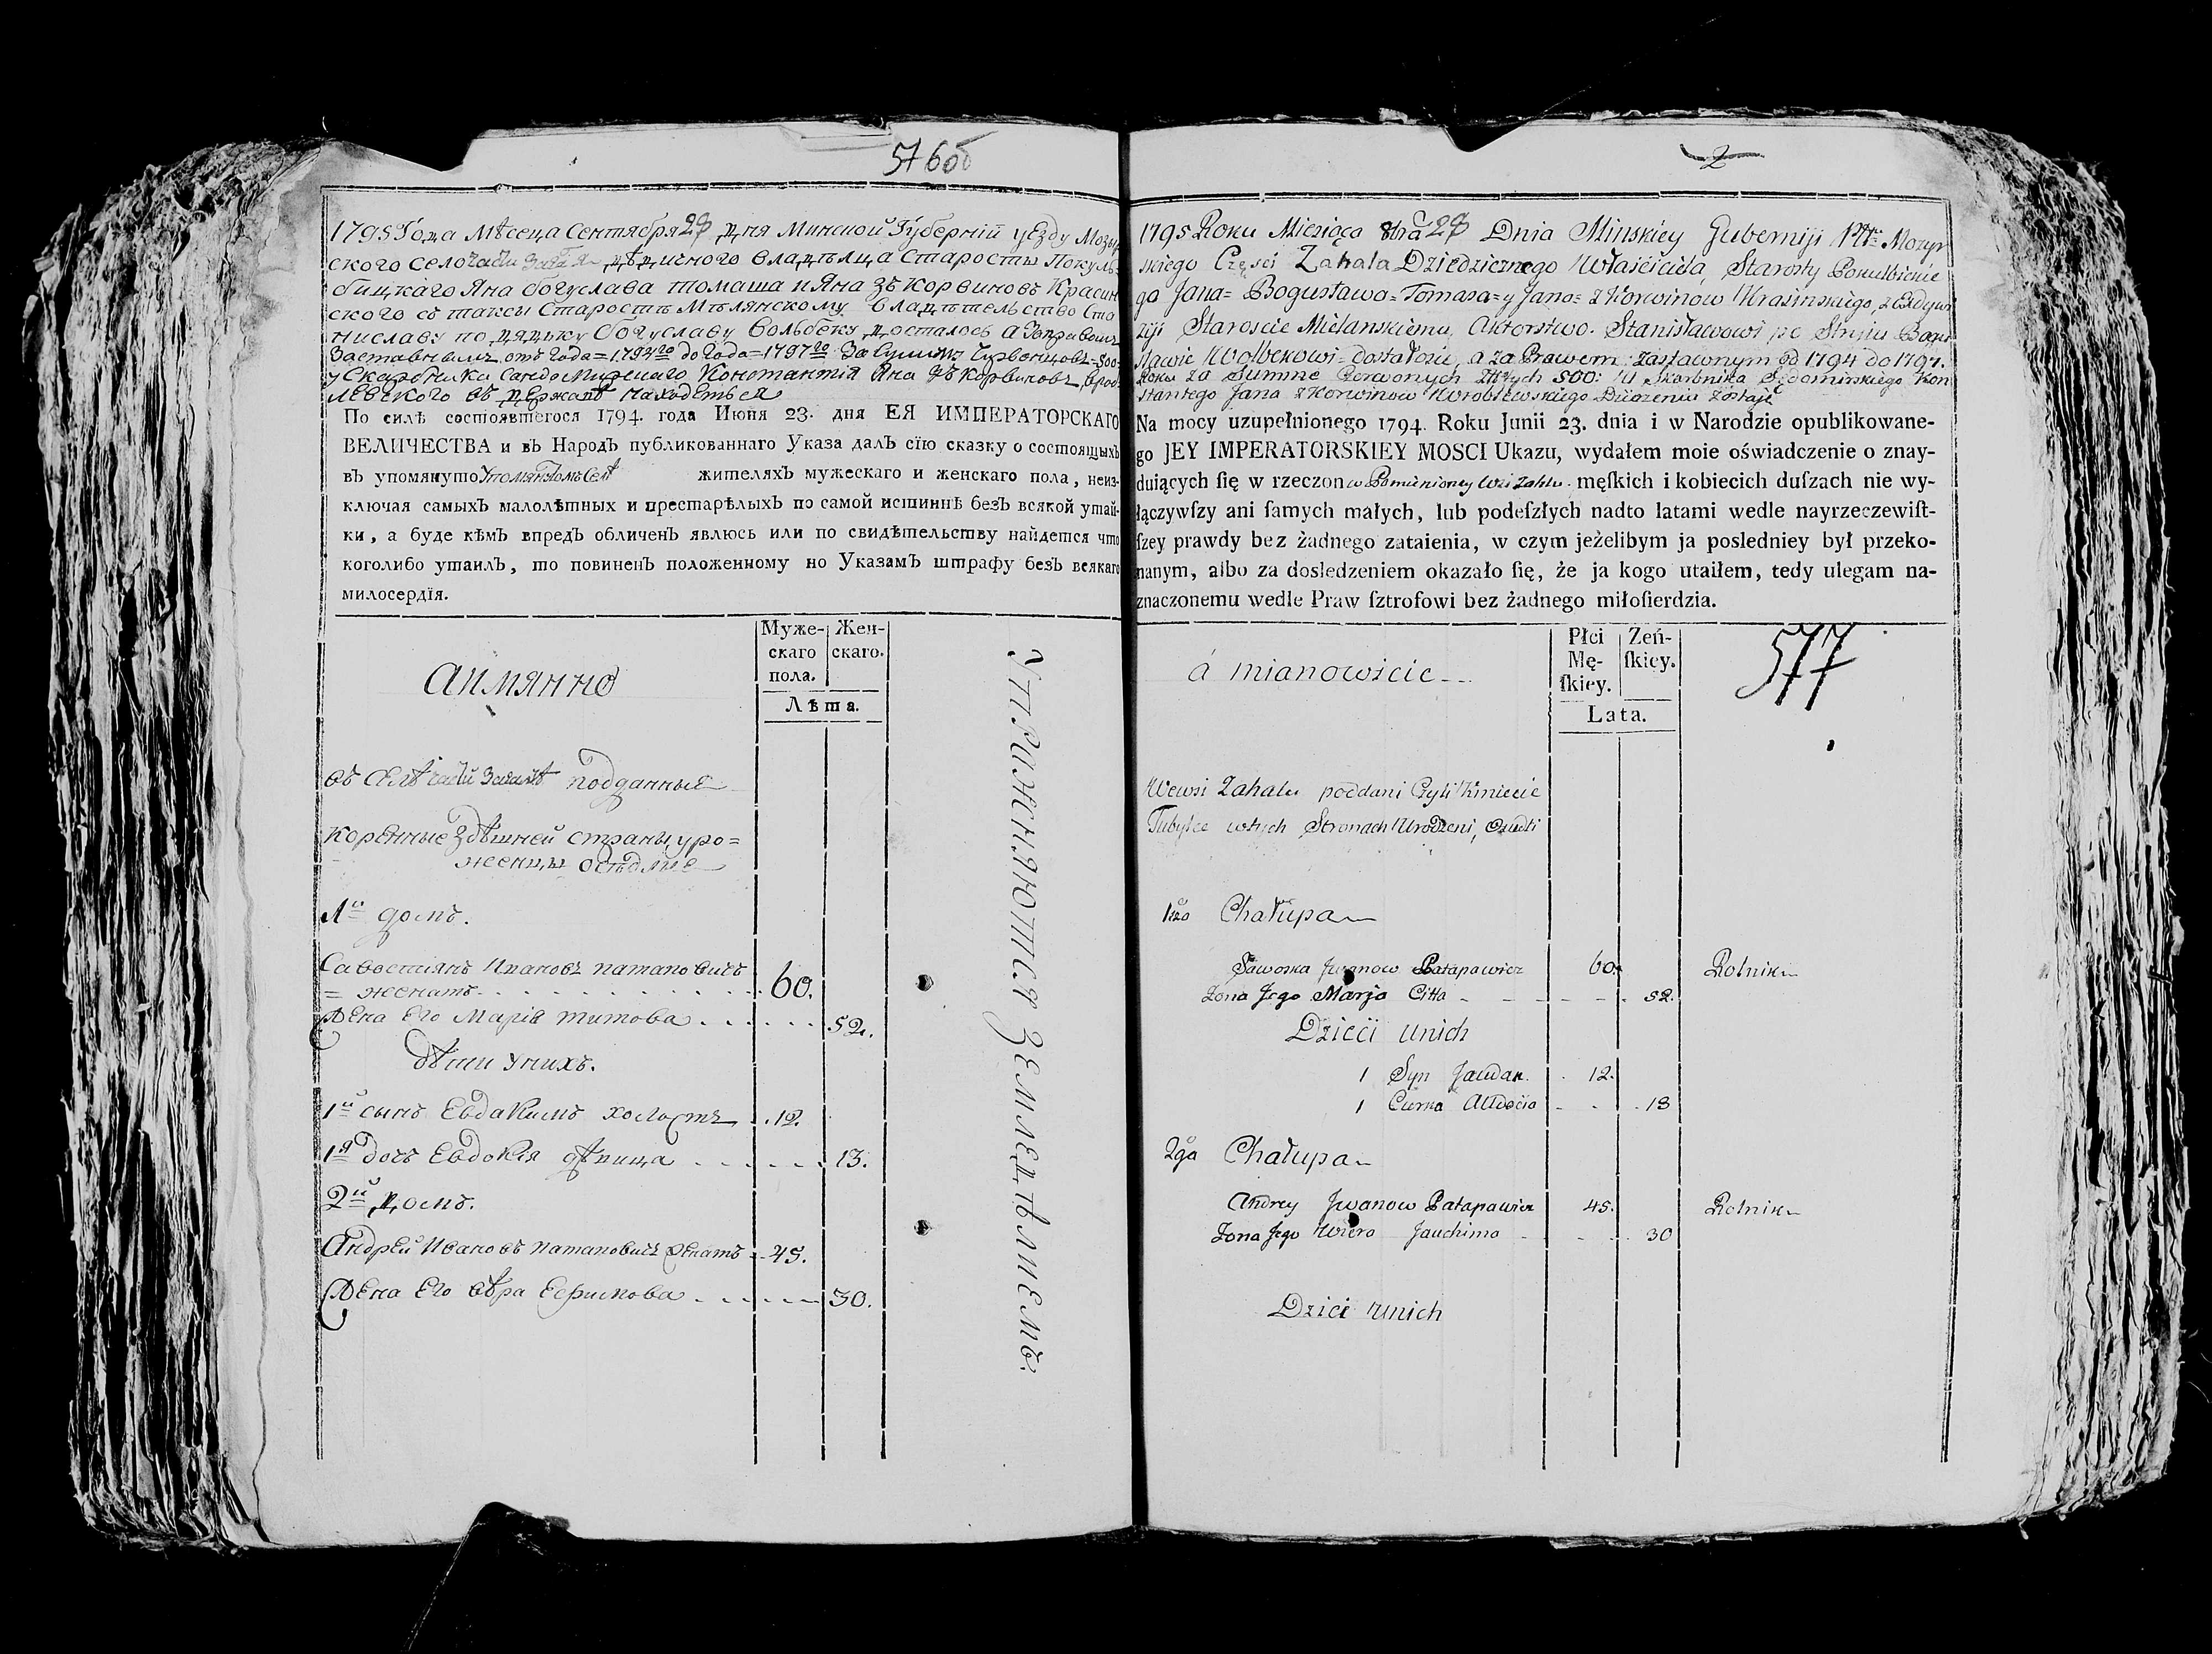 576об
1795 Года Мѣсеца Сентября 28 дня Минской Губерніи уезду Мозыр
ского село части дѣдичного владѣлца Старосты Покуль
бицкаго Яна Богуслава Томаша и Яна зъ Корвиновъ Красин
ского съ таксы Старостѣ Мѣлянскому владѣтельство Ста
ниславу по дядьку Богуславу Вольбеку досталось а
Заставнымъ отъ года = 1794го до года = 1797го За Сумму Червонцовъ = 500
у Скарбника Сандомирскаго Константія Яна зъ Корвиновъ Вроб
левского въ держанѣ находеться
По силѣ состоявшегося 1794. года Июня 23. дня ЕЯ ИМПЕРАТОРСКАГО
ВЕЛИЧЕСТВА и въ Народъ публикованнаго Указа далъ сїю сказку о состоящыхъ
въ упомянуто Упомянутомъ Селѣ жителяхъ мужескаго и женскаго пола, неиз-
ключая самыхъ малолѣтных и престарѣлыхъ по самой истиннѣ безъ всякой утай-
ки, а буде кѣмъ впредъ обличенъ явлюсь или по свидѣтельству найдется что
коголибо утаилъ, то повиненъ положенному по Указамъ штрафу безъ всякаго
милосердїя.
Муже-
скаго
пола.
Жен-
скаго.
Лѣта.
Аимянно
въ Селѣ части Загалѣ подданные
коренные здѣшней страны уро=
женцы осѣдлые
1й домъ.
Савостіянъ Ивановъ Патаповичъ
= женатъ 60.
Жена Его Марія Титова 52.
дѣти у нихъ.
1й сынъ Евдакимъ холостъ 12.
1я дочь Евдокія дѣвица 13.
2й домъ.
Андрей Ивановъ Патаповичъ женатъ 45.
Жена Его Вѣра Ефимова 30.
Упражняются земледѣлиемъ.
2
1795 Roku Miesiąca 8bra 28 Dnia Minskiey Guberniji Ptu Mozyr
skiego Częsci Zahala Dziedzicznego Właściciela Starosty Pokulbickie
go Jana = Bogusława = Tomasa = y Jana = z Korwinow Krasinskiego, z Exdywi
zyi Staroscie Mielanskiemu, Aktorstwo Stanisławowi po Stryiu Bogu
sławie Wolbekowi dostałosię, a za Prawem Zastawnym od 1794 do 1797.
Roku za Summe Czerwonych Złłtych 500: U Skarbnika Sędomirskiego Kon
stantego Jana z Korwinow Wroblewskiego Dzierzeniu Zostaje
Na mocy uzupełnionego 1794. Roku Junii 23. dnia i w Narodzie opublikowane-
go JEY IMPERATORSKIEY MOSCI Ukazu, wydałem moie oświadczenie o znay-
duiących ſię w rzeczon w Pomienioney Wsi Zahlu męſkich i kobiecich duſzach nie wy-
łączywſzy ani ſamych małych, lub podeſzłych nadto latami wedle nayrzeczewiſt-
ſzey prawdy bez żadnego zataienia, w czym jeżelibym ja posledniey był przeko-
nanym, albo za dosledzeniem okazało ſię, że ja kogo utaiłem, tedy ulegam na-
znaczonemu wedle Praw ſztrofowi bez żadnego miłoſierdzia.
á mianowicie
Płci
Mę-
ſkiey.
Zeń-
ſkiey.
Lata.
577
Wewsi Zahalu poddani Czyli Kmiecie
Tubylce wtych Stronach Urodzeni, Osiedli
1sza Chałupa
Sawoska Jwanow Patapawicz 60. Rolnik
Zona Jego Marja Citta 52.
Dzieci unich
1 Syn Jaudak. 12.
1 Curka Audocia 13
2ga Chałupa
Andrey Jwanow Patapawicz 45. Rolnik
Zona Jego Wiera Jauchima 30
Dzici unich